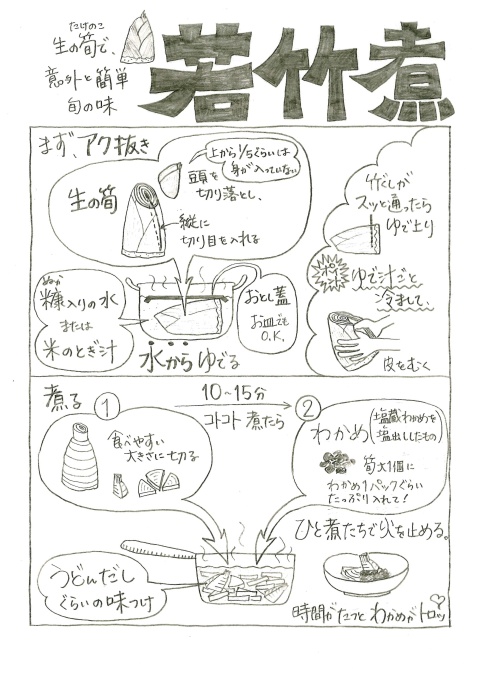 たけのこ
生の筍で、
意外と簡単
旬の味
若竹煮
まず、アク抜き
生の筍
上から1/5くらいは
身が入っていない
頭を
切り落とし、
縦に
切り目を入れる
ぬか
糠入りの水
または
米のとぎ汁
水からゆでる
おとし蓋
お皿でも
O.K.
竹ぐしが
スッと通ったら
ゆで上り
ポイント
ゆで汁ごと
冷まして、
皮をむく
煮る
①
食べやすい
大きさに切る
10~15分
コトコト煮たら
②
わかめ
(塩蔵わかめを
塩出ししたもの)
筍大1個に
わかめ1パックぐらい
たっぷり入れて!
うどんだし
ぐらいの味つけ
ひと煮たちで火を止める。
時間がたつとわかめがトロッ♡